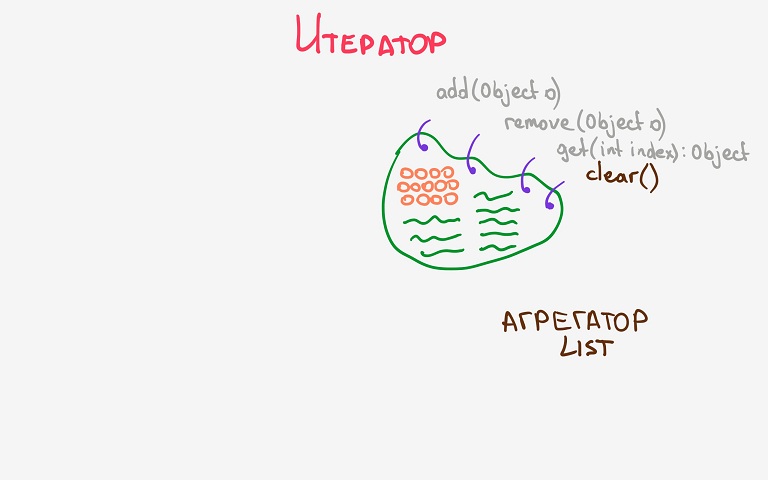 Итератор
add(Object o)
remove(Object o)
get(int index): Object
clear()
АГРЕГАТОР
LIST